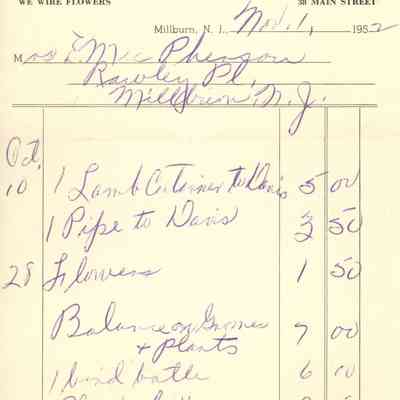 WE WIRE FLOWERS 38 MAIN STREET
Millburn, N. J., Nov. 1, 1952
Mrs E. McPherson
Rawley Pl.
Millburn, N. J.
Oct.
10 1 Lamb Container to Davis 5 00
1 Pipe to Davis 3 50
28 Flowers 1 50
Balance on Gnomes 7 00
+ Plants
1 bird bath 6 00